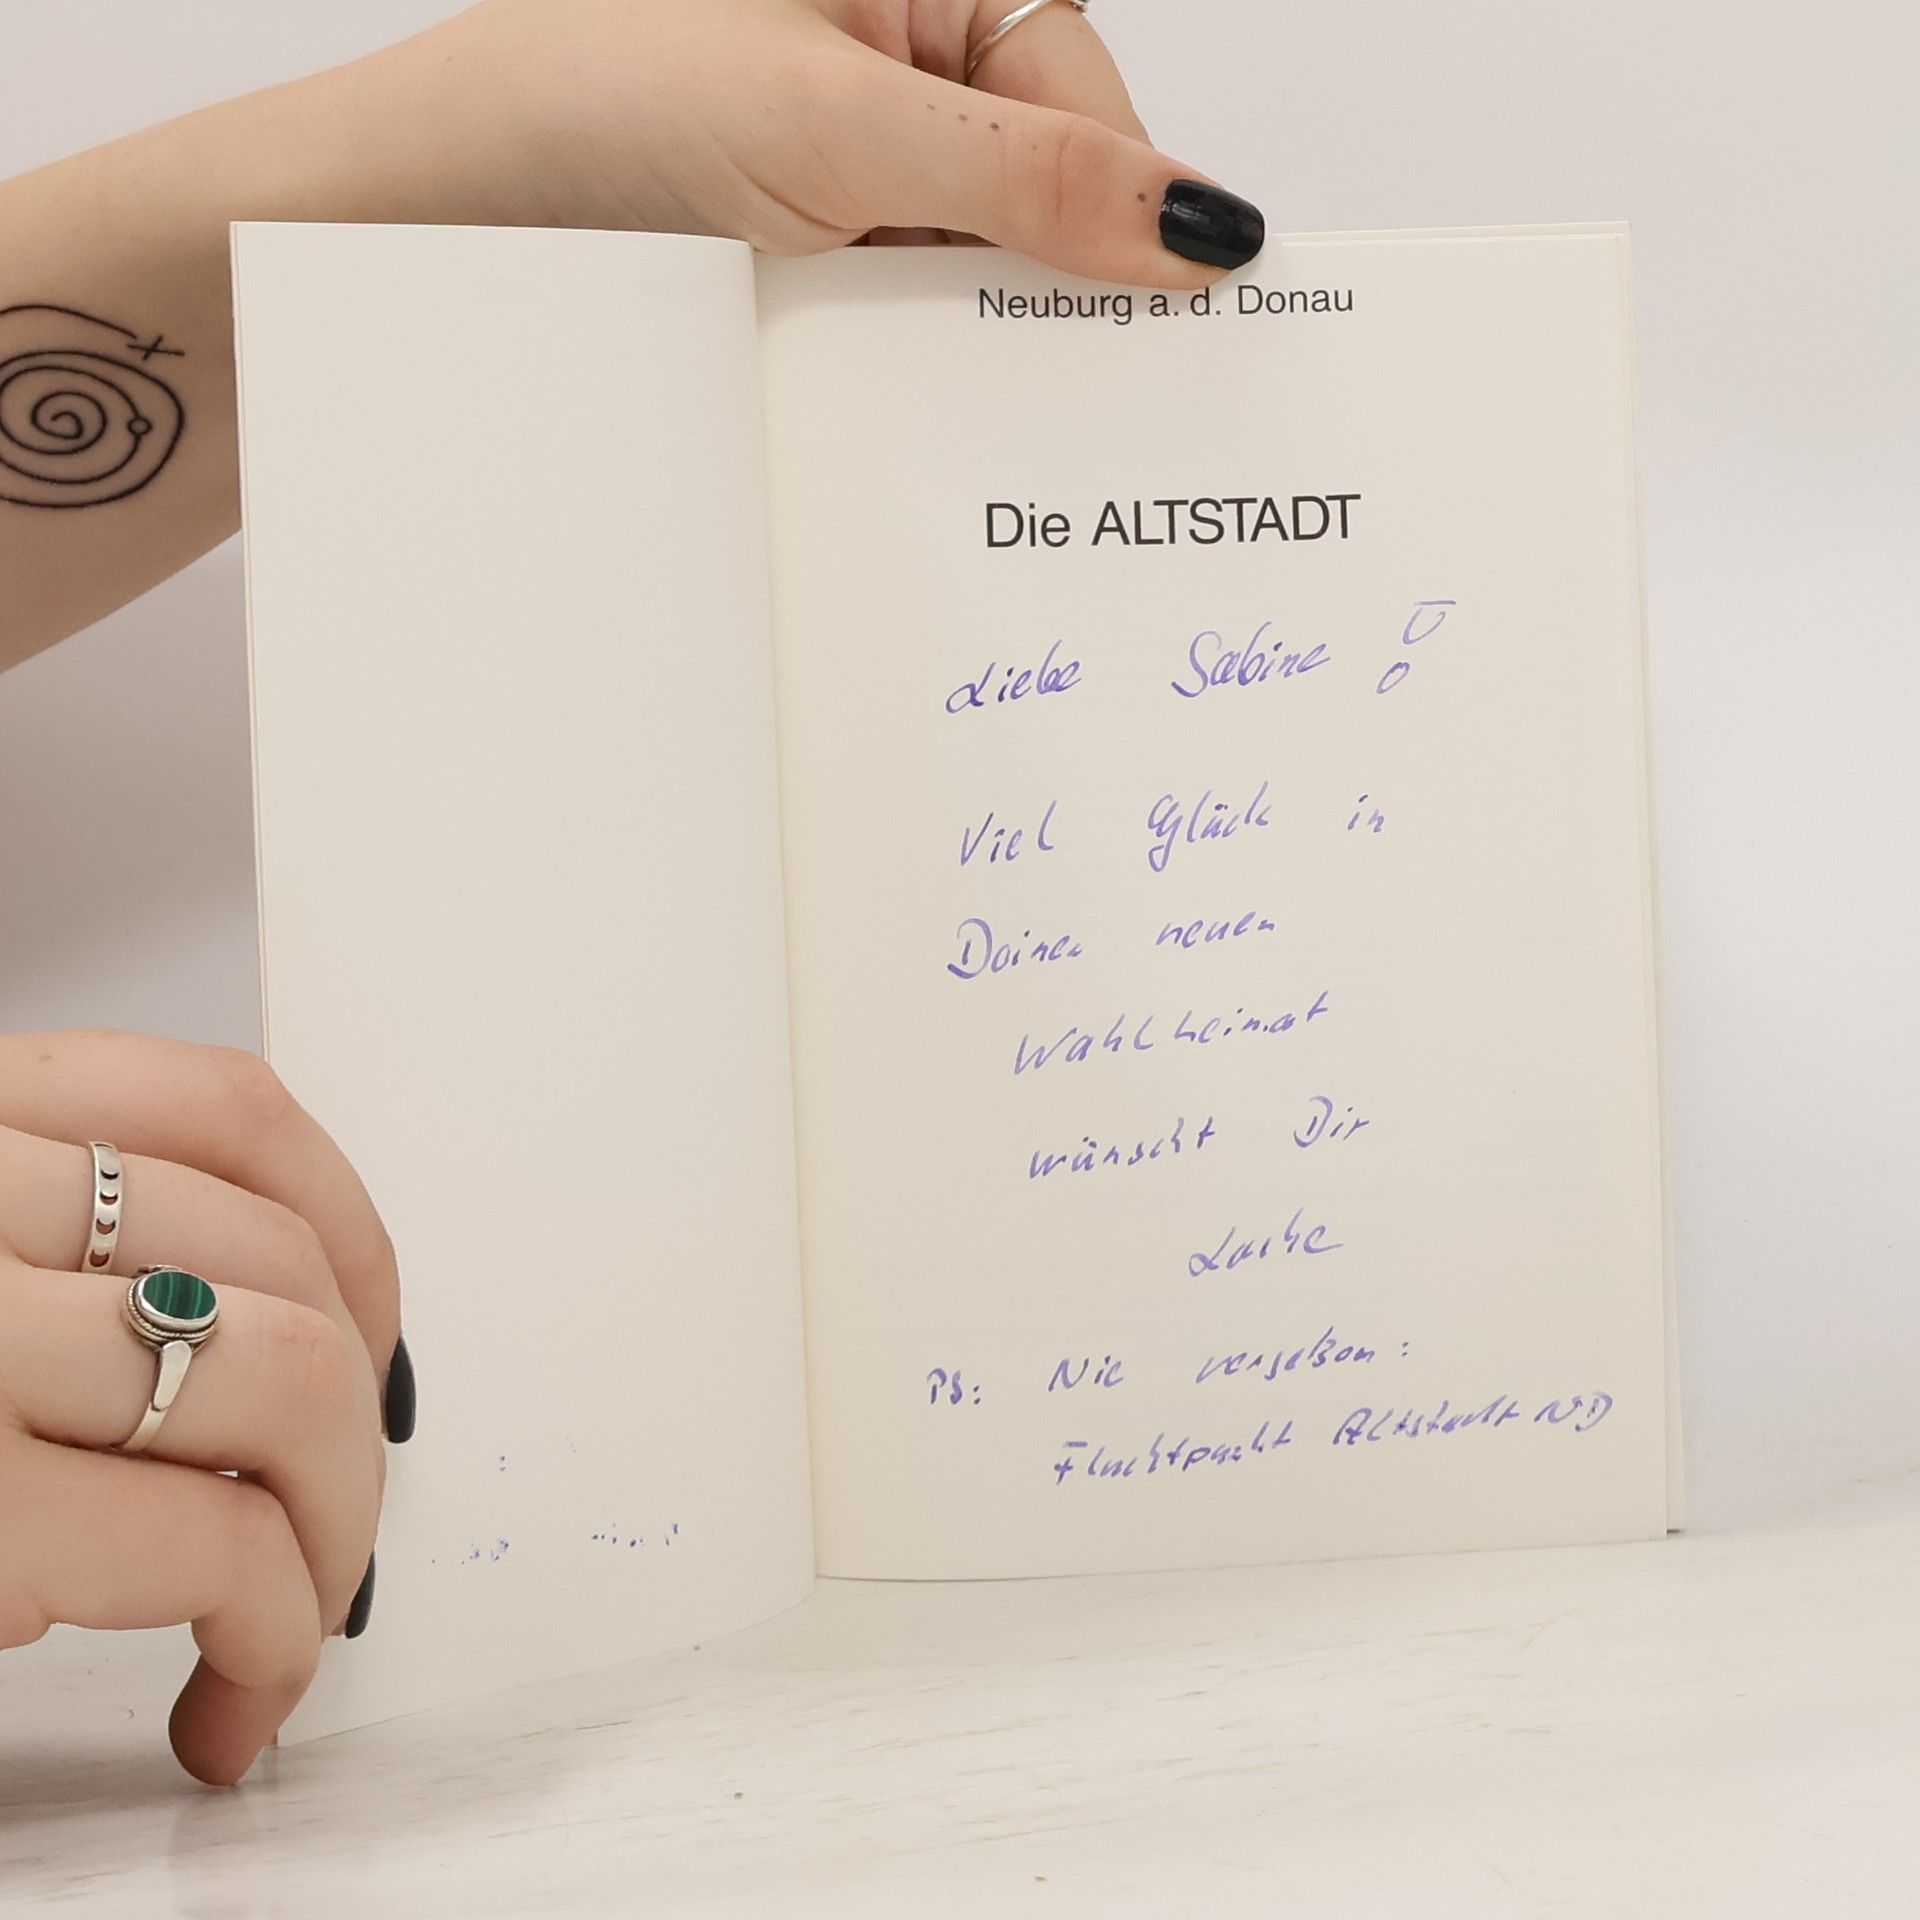 Neuburg a. d. Donau
Die ALTSTADT
Liebe Sabine !
Viel Glück in
Deiner neuen
Wahlheimat
wünscht Dir
PS: Nie vergeßen:
Altstadt ND